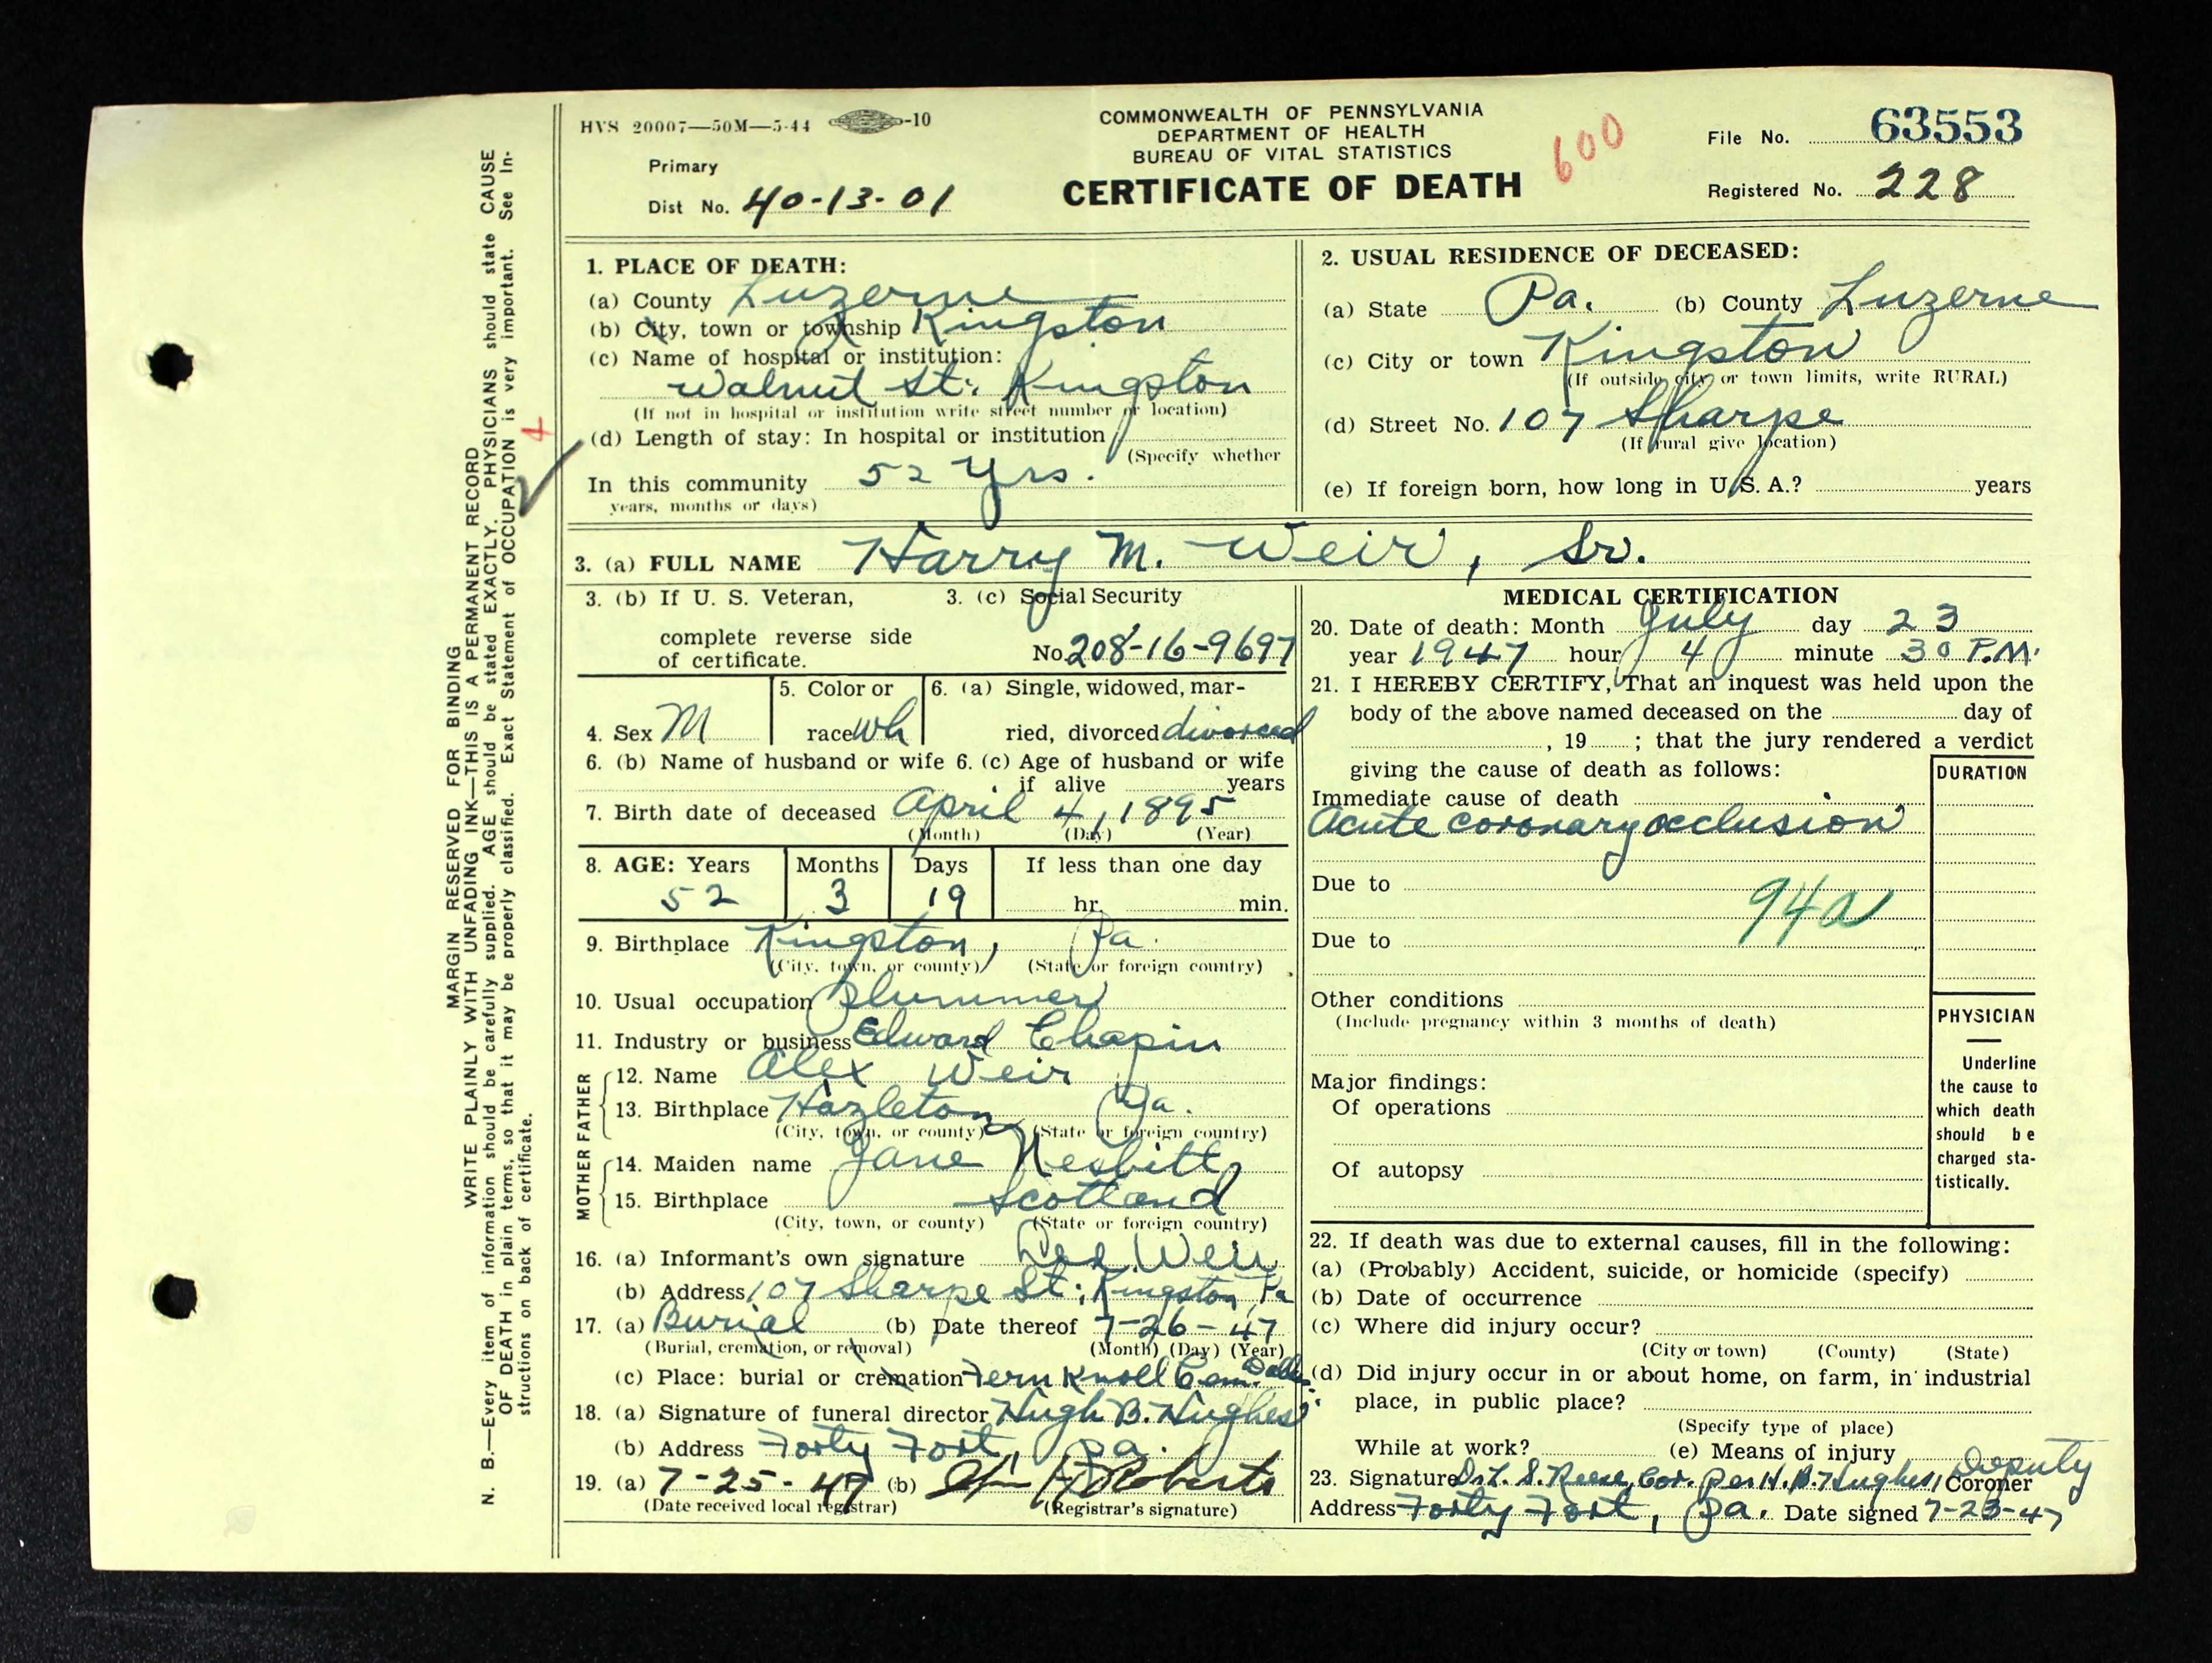 HVS 20007—50M—5-44 -10
COMMONWEALTH OF PENNSYLVANIA
DEPARTMENT OF HEALTH
BUREAU OF VITAL STATISTICS
CERTIFICATE OF DEATH
600
File No. 63553
Registered No. 228
Primary
Dist No. 40-13-01
MARGIN RESERVED FOR BINDING
WRITE PLAINLY WITH UNFADING INK—THIS IS A PERMANENT RECORD
N. B.—Every item of information should be carefully supplied. AGE should be stated EXACTLY. PHYSICIANS should state CAUSE
OF DEATH in plain terms, so that it may be properly classified. Exact Statement of OCCUPATION is very important. See In-
structions on back of certificate.
4
1. PLACE OF DEATH:
(a) County Luzerne
(b) City, town or township Kingston
(c) Name of hospital or institution:
Walnut St. Kingston
(If not in hospital or institution write street number or location)
(d) Length of stay: In hospital or institution
(Specify whether
In this community 52 yrs.
years, months or days)
2. USUAL RESIDENCE OF DECEASED:
(a) State Pa. (b) County Luzerne
(c) City or town Kingston
(If outside city or town limits, write RURAL)
(d) Street No. 107 Sharpe
(If rural give location)
(e) If foreign born, how long in U. S. A.? years
3. (a) FULL NAME Harry M. Weir, Sr.
3. (b) If U. S. Veteran, 3. (c) Social Security
complete reverse side
of certificate. No. 208-16-9697
4. Sex M
5. Color or
race wh
6. (a) Single, widowed, mar-
ried, divorced divorced
6. (b) Name of husband or wife 6. (c) Age of husband or wife
if alive years
7. Birth date of deceased April 4, 1895
(Month) (Day) (Year)
8. AGE: Years Months Days If less than one day
52 3 19 hr. min.
9. Birthplace Kingston, Pa.
(City, town, or county) (State or foreign country)
10. Usual occupation Plummer
11. Industry or business Edward Chapin
FATHER
12. Name Alex Weir
13. Birthplace Hazleton Pa.
(City, town, or county) (State or foreign country)
MOTHER
14. Maiden name Jane Nesbitt
15. Birthplace Scotland
(City, town, or county) (State or foreign country)
16. (a) Informant's own signature Weir
(b) Address 107 Sharpe St; Kingston, Pa
17. (a) Burial (b) Date thereof 7-26-47
(Burial, cremation, or removal) (Month) (Day) (Year)
(c) Place: burial or cremation Fern Knoll Cem. Dallas
18. (a) Signature of funeral director Hugh B. Hughes
(b) Address Forty Fort, Pa.
19. (a) 7-25-47 (b) Roberts
(Date received local registrar) (Registrar's signature)
MEDICAL CERTIFICATION
20. Date of death: Month July day 23
year 1947 hour 4 minute 30 P.M.
21. I HEREBY CERTIFY, That an inquest was held upon the
body of the above named deceased on the day of
, 19 ; that the jury rendered a verdict
giving the cause of death as follows:
DURATION
Immediate cause of death
Acute coronary occlusion
Due to
94a
Due to
Other conditions
(Include pregnancy within 3 months of death)
Major findings:
Of operations
Of autopsy
PHYSICIAN
Underline
the cause to
which death
should be
charged sta-
tistically.
22. If death was due to external causes, fill in the following:
(a) (Probably) Accident, suicide, or homicide (specify)
(b) Date of occurrence
(c) Where did injury occur?
(City or town) (County) (State)
(d) Did injury occur in or about home, on farm, in industrial
place, in public place?
(Specify type of place)
While at work? (e) Means of injury
23. Signature Dr. L. S. Reese, Cor. per H. B. Hughes, Deputy Coroner
Address Forty Fort, Pa. Date signed 7-23-47